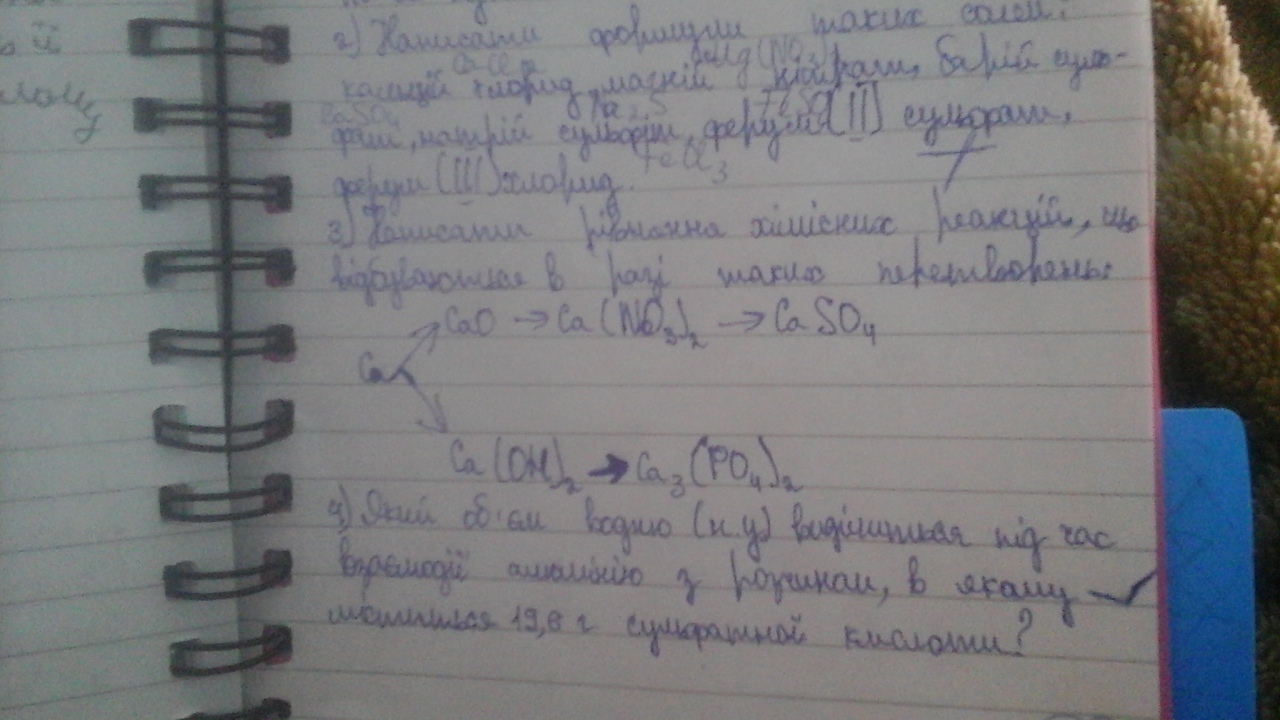 2) Написати формули таких солей:
CaCl2 Mg(NO3)
кальцій хлорид, магній нітрат, барій суль-
BaSO4 Na2S FeSO4
фат, натрій сульфід, ферум (II) сульфат,
FeCl3
ферум (III) хлорид.
3) Написати рівняння хімічних реакцій, що
відбуваються в разі таких перетворень:
CaO → Ca(NO3)2 → CaSO4
Ca
Ca(OH)2 → Ca3(PO4)2
4) Який об'єм водню (н.у) виділиться під час
взаємодії алюмінію з розчином, в якому
міститься 19,6 г сульфатної кислоти?